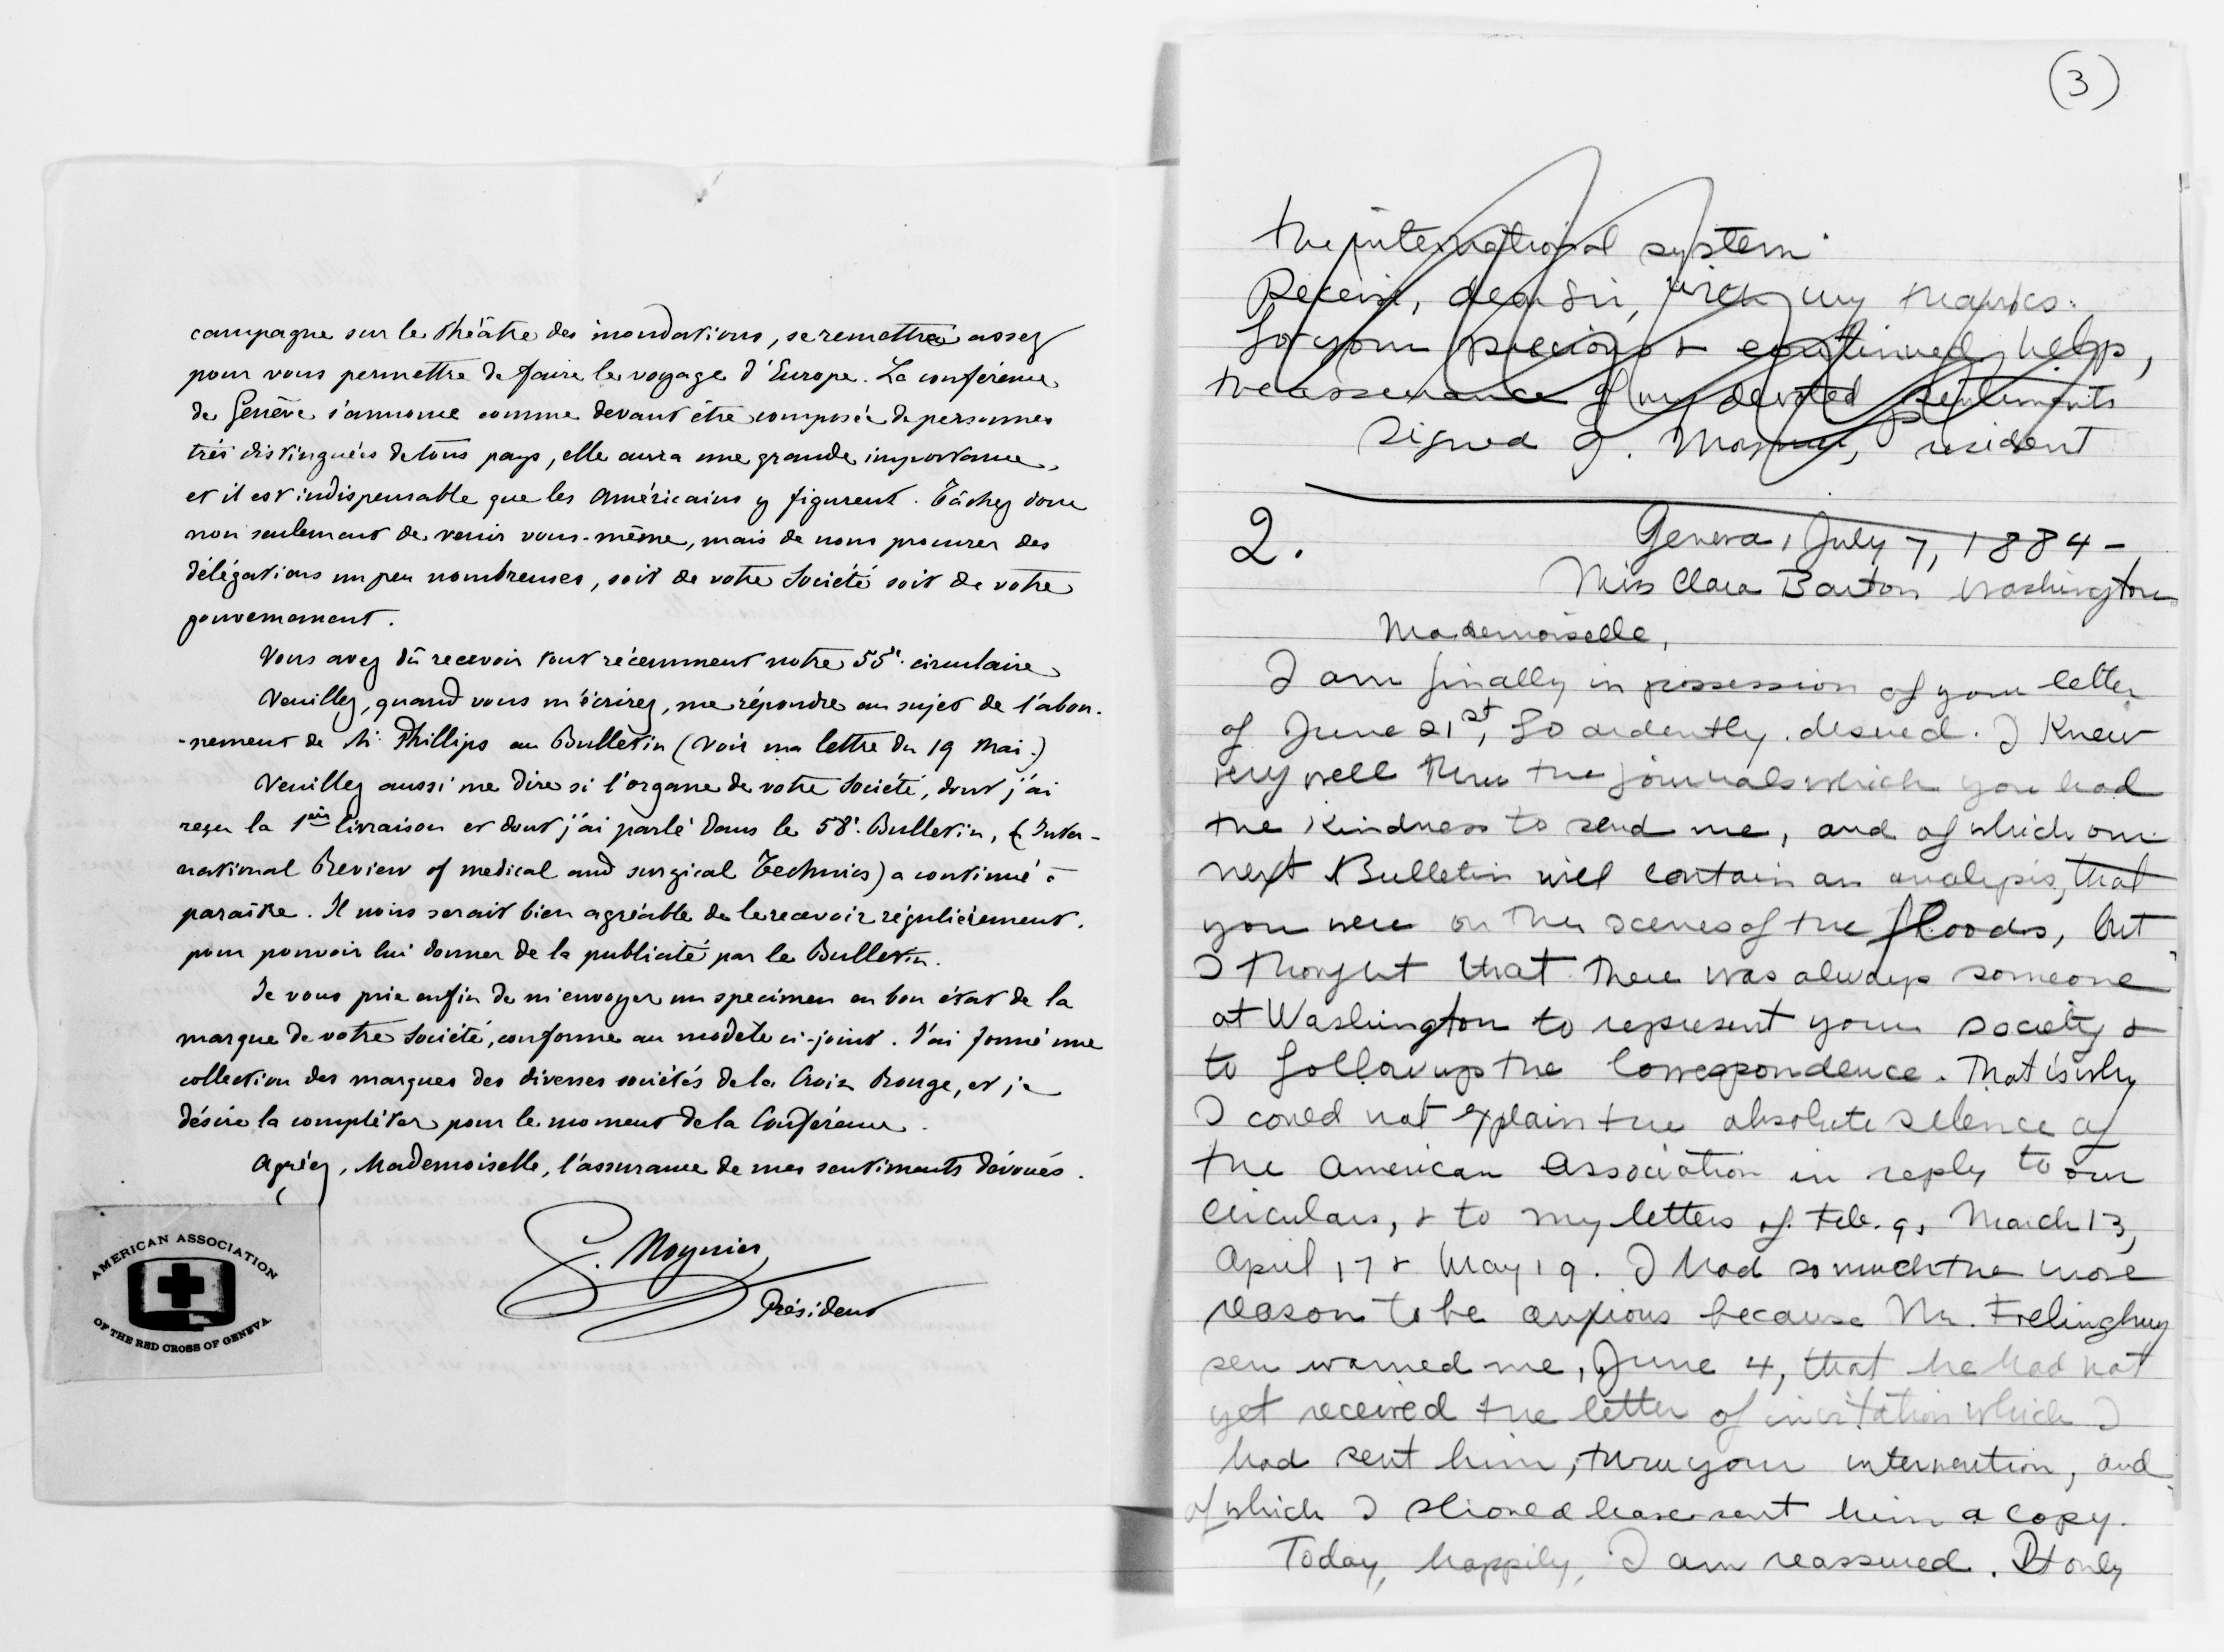 campagne sur le théâtre des inondations, se remettra assez
pour vous permettre de faire le voyage d'Europe. La conférence
de Genève s'annonce comme devant être composée de personnes
très distinguées de tous pays, elle aura une grande importance,
et il est indispensable que les Américains y figurent. Tâchez donc
non seulement de venir vous-même, mais de nous procurer des
délégations un peu nombreuses, soit de votre Société soit de votre
gouvernement.
Vous avez dû recevoir tout récemment notre 55e. circulaire
Veuillez, quand vous m'écrirez, me répondre au sujet de l'abon-
-nement de Mr Phillips au Bulletin (voir ma lettre du 19 Mai.)
Veuillez aussi me dire si l'organe de votre Société, dont j'ai
reçu la 1ère livraison et dont j'ai parlé dans le 58e. Bulletin, (Inter-
national Review of medical and surgical Technics) a continué à
paraître. Il nous serait bien agréable de le recevoir régulièrement.
pour pouvoir lui donner de la publicité par le Bulletin.
Je vous prie enfin de m'envoyer un specimen en bon état de la
marque de votre Société, conforme au modèle ci-joint. J'ai formé une
collection des marques des diverses sociétés de la Croix Rouge, et je
désire la compléter pour le moment de la Conférence.
Agréez, Mademoiselle, l'assurance de mes sentiments dévoués.
G. Moynier,
Président
AMERICAN ASSOCIATION
OF THE RED CROSS OF GENEVA.
(3)
the international system.
Receive, dear Sir, with my thanks.
for your precious & continued help,
the assurance of my devoted sentiments
Signed G. Moynier, President
2.
Geneva, July 7, 1884-
Miss Clara Barton Washington
Mademoiselle,
I am finally in possession of your letter
of June 21st, so ardently desired. I knew
very well thru the journals which you had
the kindness to send me, and of which our
next Bulletin will contain an analysis, that
you were on the scenes of the floods, but
I thought that there was always someone
at Washington to represent your society &
to follow up the correspondence. That is why
I could not explain the absolute silence of
the American Association in reply to our
circulars, & to my letters of Feb. 9, March 13,
April 17 & May 19. I had so much the more
reason to be anxious because Mr. Frelinghuy
sen warned me, June 4, that he had not
yet received the letter of invitation which I
had sent him, thru your intervention, and
of which I should have sent him a copy.
Today, happily, I am reassured. It only